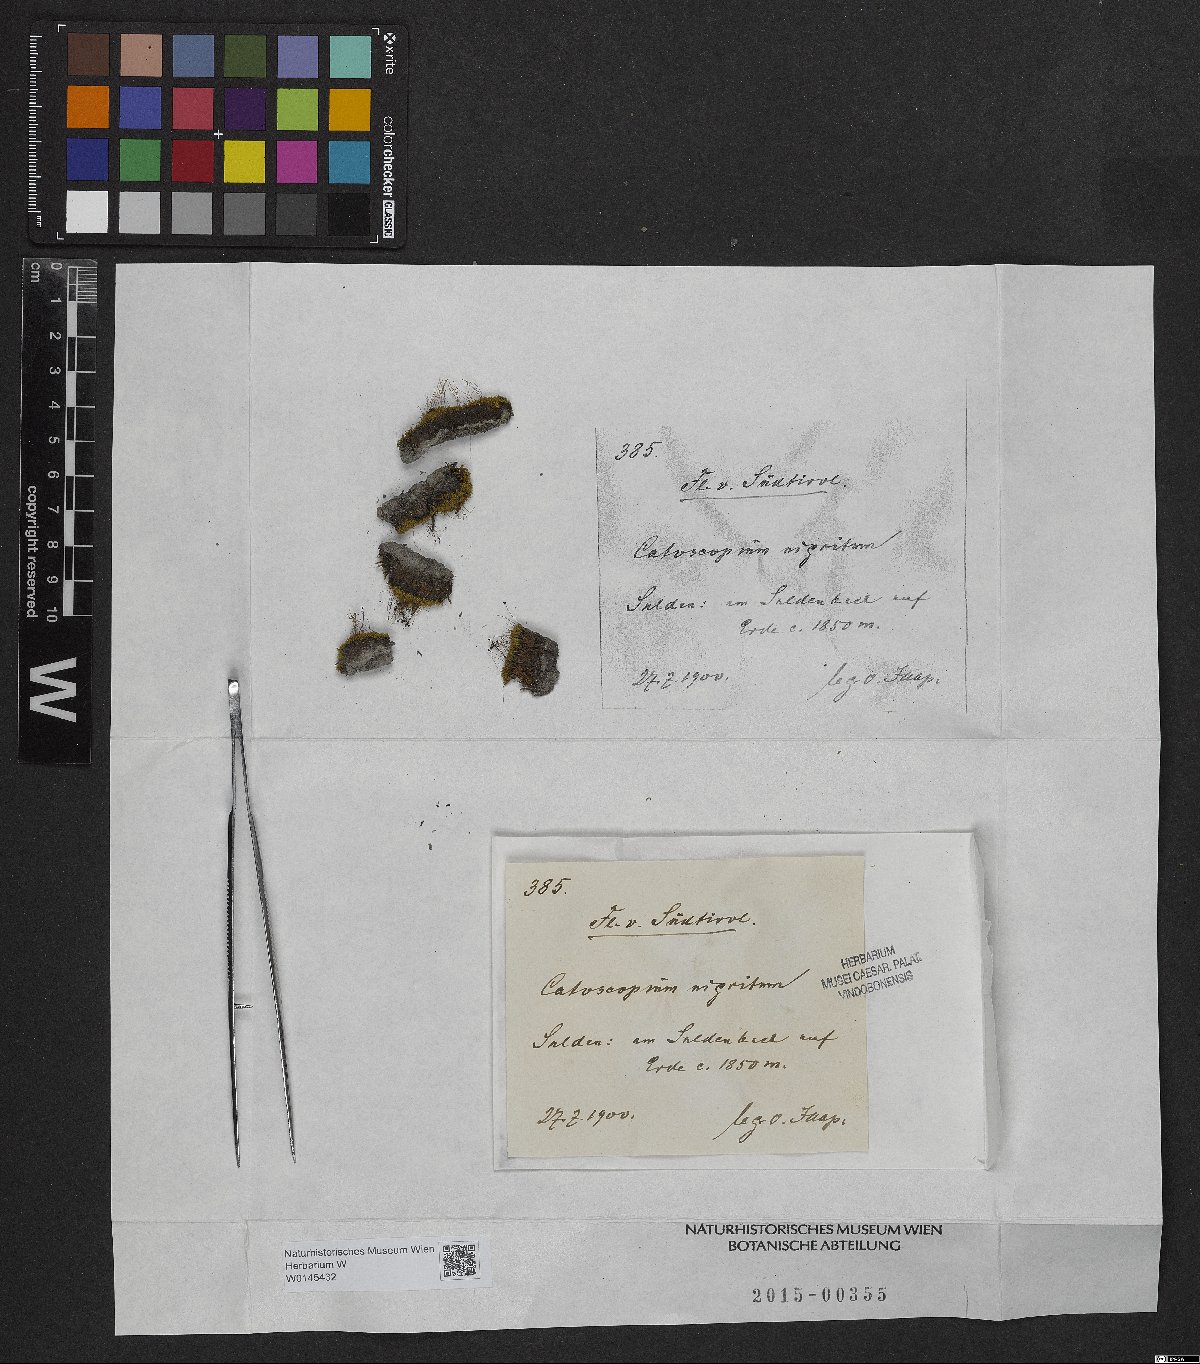 xrite
colorchecker CLASSIC
mm
cm
0 1 2 3 4 5 6 7 8 9 10
copyright reserved
W
385.
Fl. v. Südtirol.
Catoscopium nigritum
Sulden: am Suldenbach auf
Erde c. 1850 m.
27.7.1900. leg. O. Jaap.
385.
Fl. v. Südtirol.
Catoscopium nigritum
Sulden: am Suldenbach auf
Erde c. 1850 m.
27.7.1900. leg. O. Jaap.
HERBARIUM
MUSEI CAESAR. PALAT.
VINDOBONENSIS
NATURHISTORISCHES MUSEUM WIEN
BOTANISCHE ABTEILUNG
2015-00355
Naturhistorisches Museum Wien
Herbarium W
W0145432